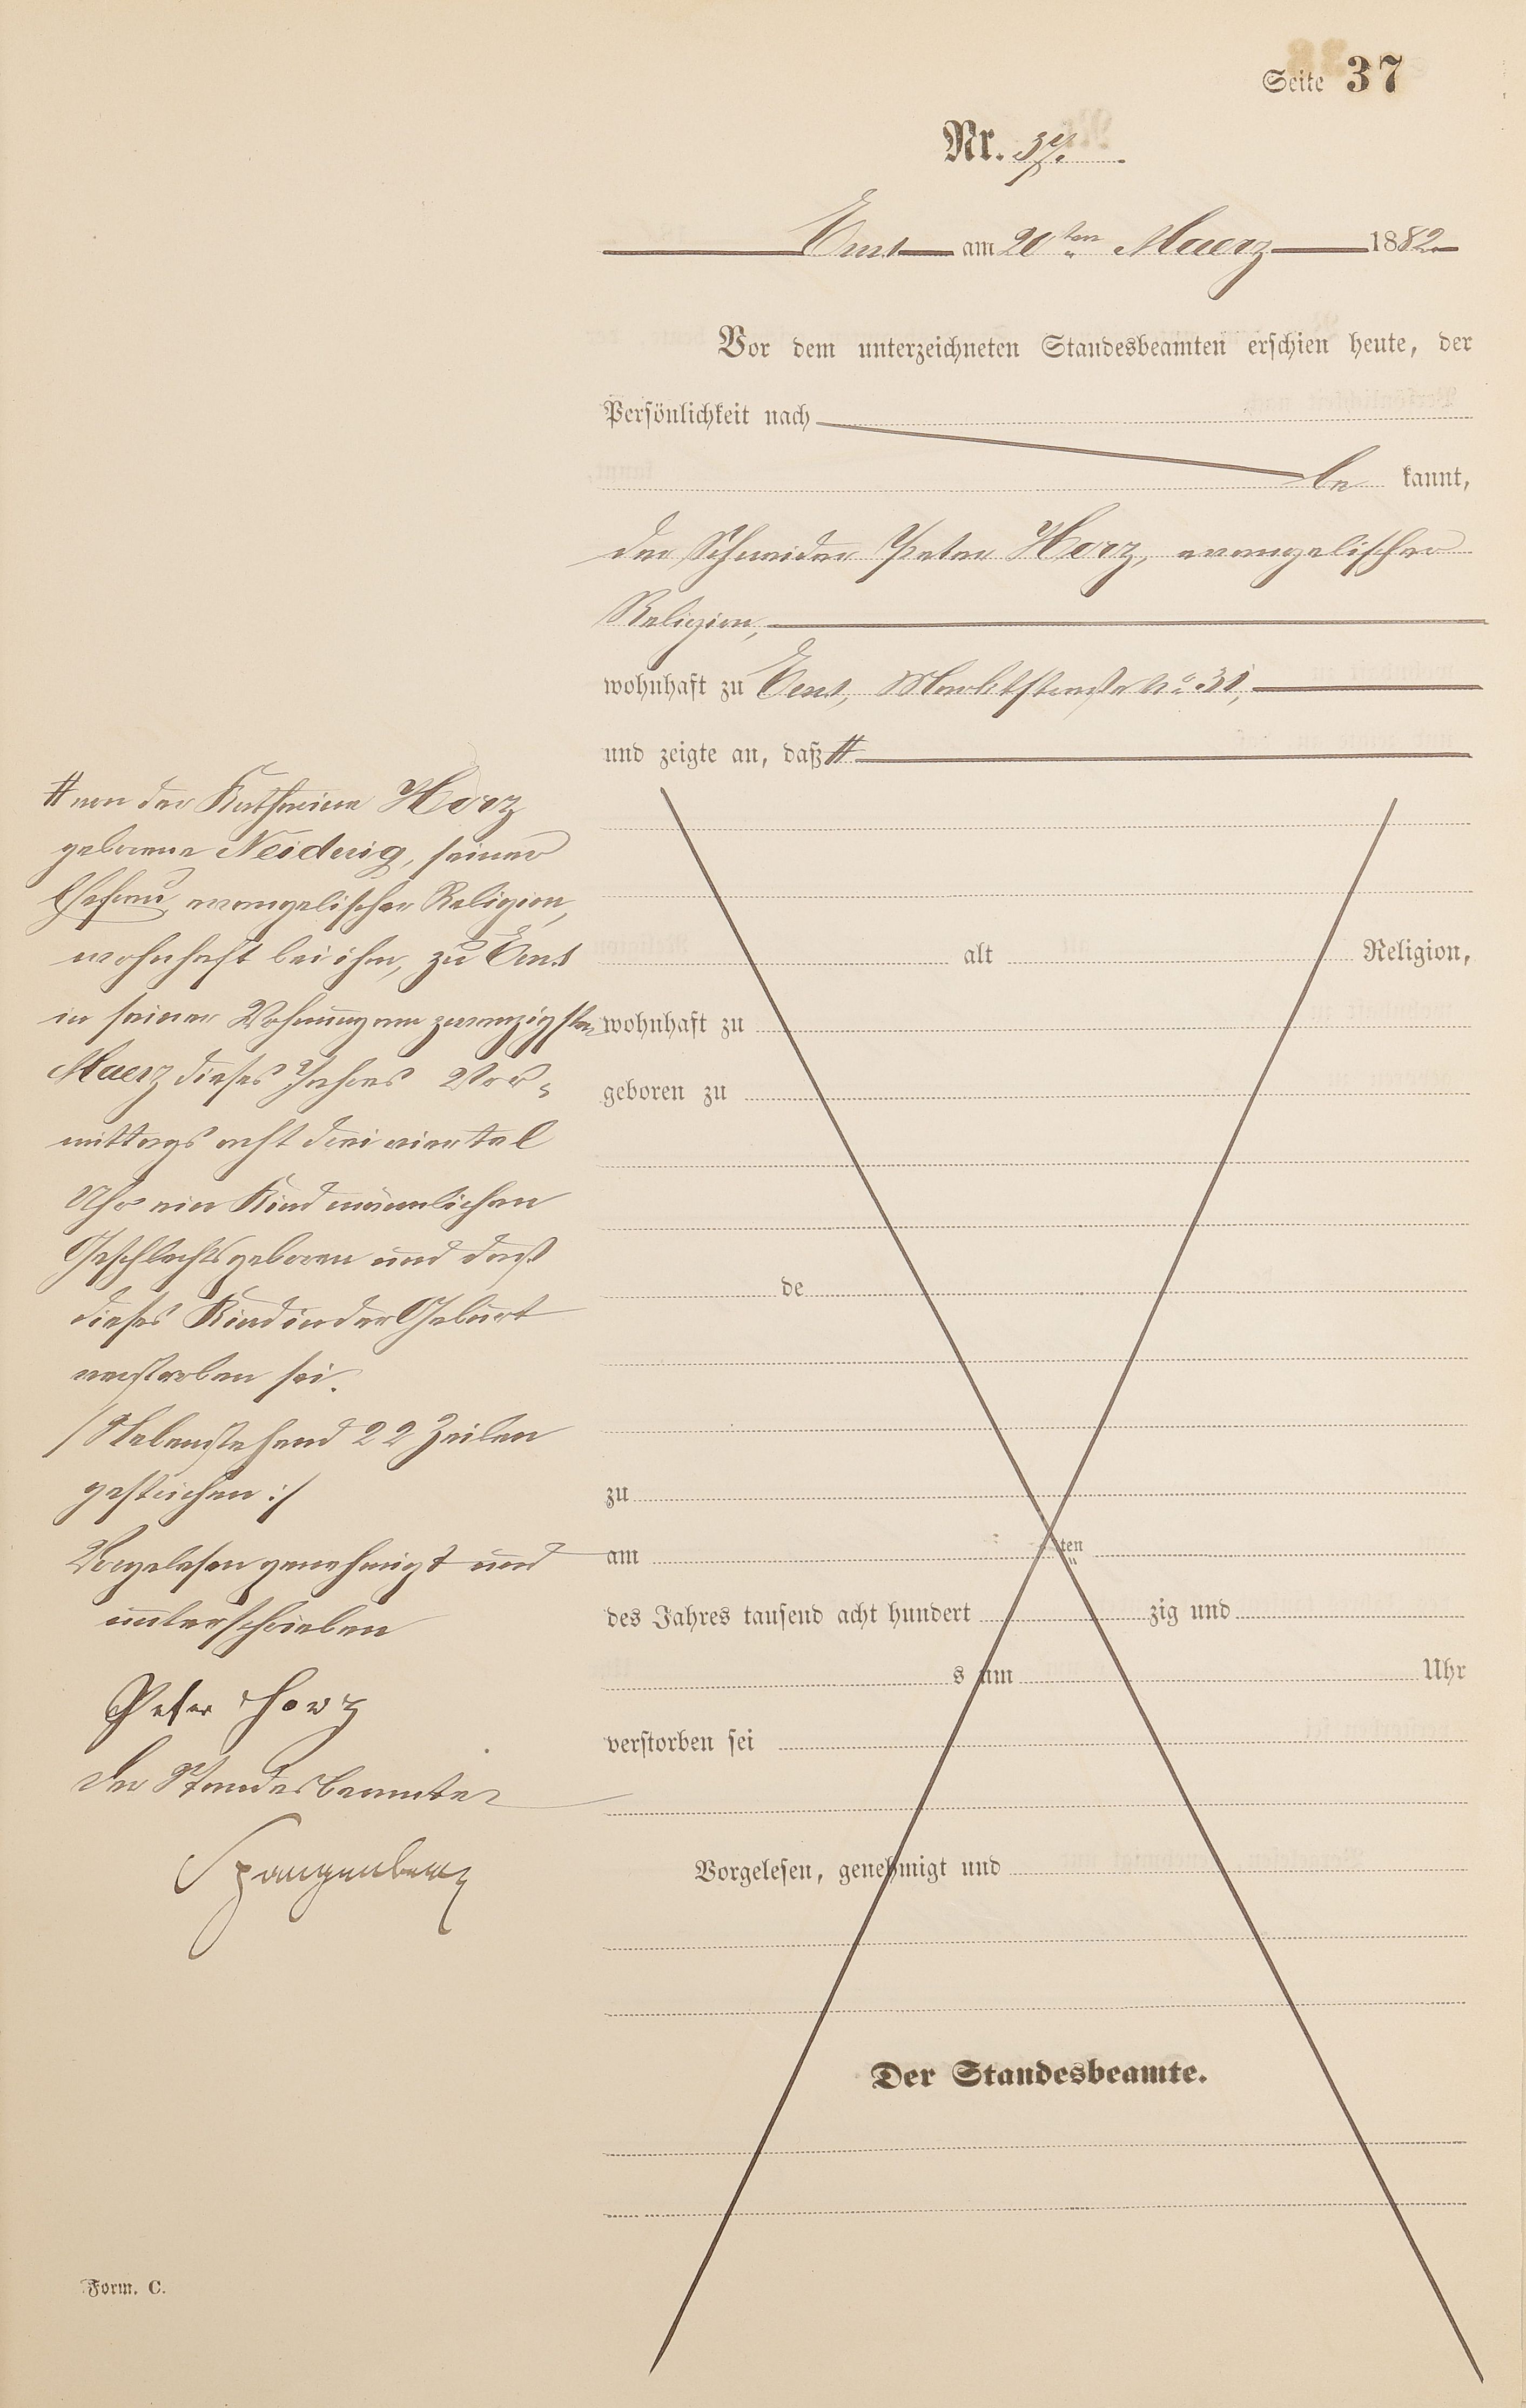 Seite 37
Nr. 37.
Ems am 20ten Maerz 1882
Vor dem unterzeichneten Standesbeamten erschien heute, der
Persönlichkeit nach
be kannt,
der Schneider Peter Horz, evangelischer
Religion,
wohnhaft zu Ems, Marktstraße No 31,
und zeigte an, daß #
# von der Katharina Horz
geborene Neidwig, seiner
Ehefrau evangelischer Religion,
wohnhaft bei ihm, zu Ems
in seiner Wohnung am zwanzigsten
Maerz dieses Jahres Vor-
mittags acht dreiviertel
Uhr ein Kind männlichen
Geschlechts geboren und daß
dieses Kind in der Geburt
verstorben sei.
/ Nebenstehend 22 Zeilen
gestrichen :/
Vorgelesen genehmigt und
unterschrieben
Peter Horz
Der Standesbeamte
Spangenberg
alt Religion,
wohnhaft zu
geboren zu
de
zu
am ten
des Jahres tausend acht hundert zig und
s um Uhr
verstorben sei
Vorgelesen, genehmigt und
Der Standesbeamte.
Form. C.